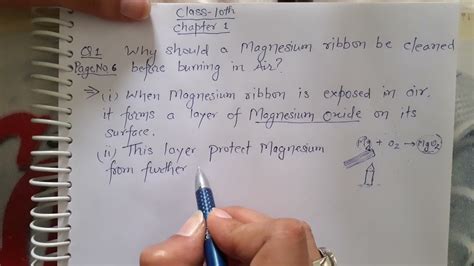 Class-10th
Chapter 1
Q.1 Why should a Magnesium ribbon be cleaned
Page No. 6 before burning in Air?
→ (i) When Magnesium ribbon is exposed in air.
it forms a layer of Magnesium Oxide on its
surface.
(ii) This layer protect Magnesium
from further
Mg + O2 → MgO2